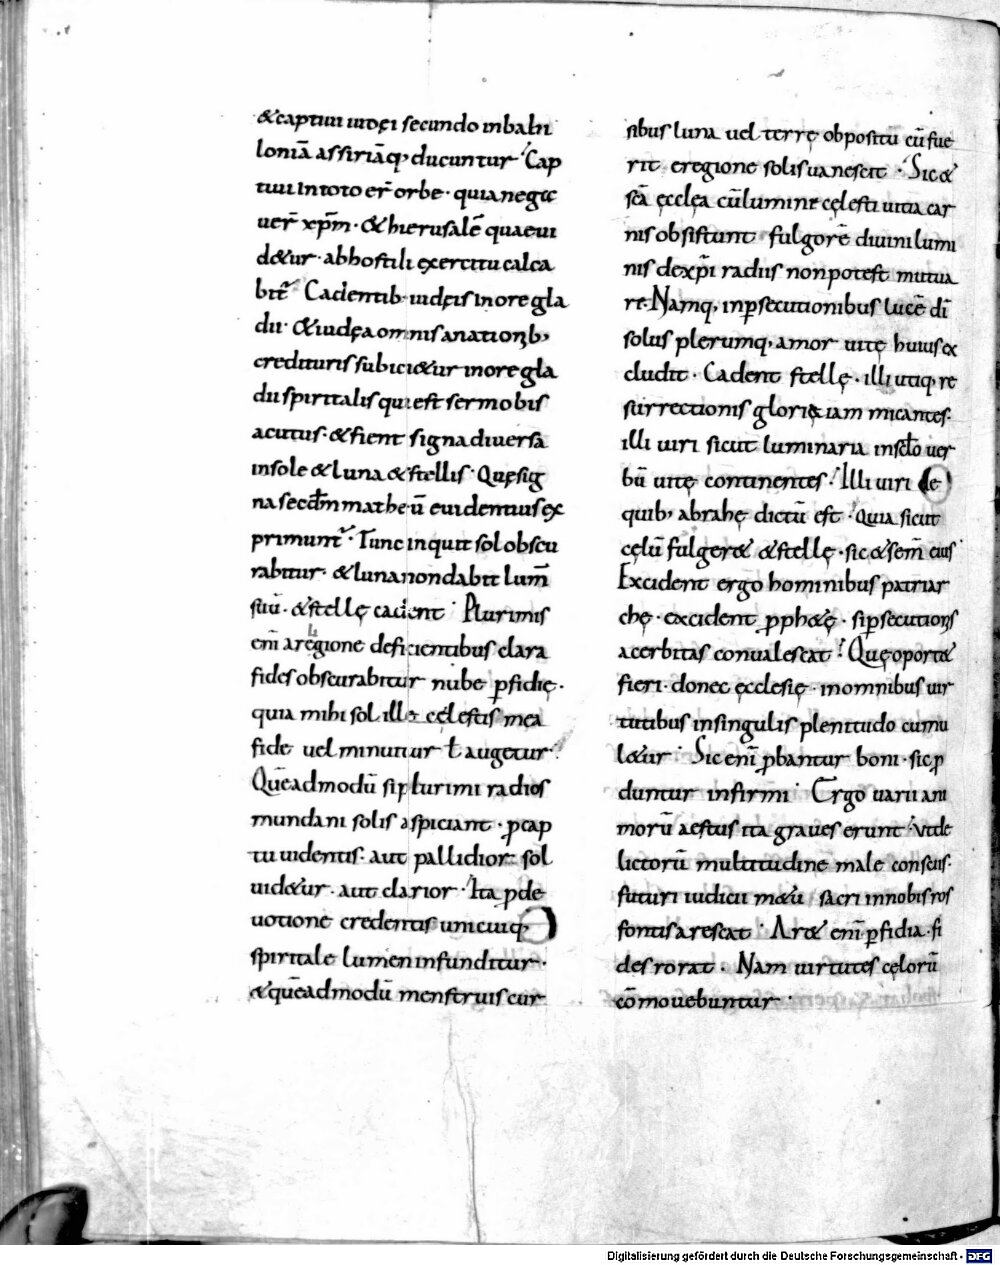 &captiui iudęi secundo inbabi
loniā assiriāq; ducuntur. Cap
tiui intoto er̄ orbe. quia negã
uer̄ xp̄m. &hierusalē quaeui
d&ur. abhostili exercitu calca
bit̄. Cadentib; iudęis inore gla
dii. &iudęa omnis anationib;
credituris subici&ur inore gla
dii spiritalis qui est sermo bis
acutus. &fient signa diuersa
insole &luna &stellis. Quęsig
na secdm matheū euidentius ex
primunt̄. Tunc inquit sol obscu
rabitur. &luna non dabit lum̄
suū. &stellę cadent. Plurimis
enī aregione deficientibus clara
fides obscurabitur nube p̱fidię.
quia mihi sol ille cęlestis mea
fide uel minuitur ł augetur.
Quēadmodū si plurimi radios
mundani solis aspiciant. p̱cap
tu uidentis. aut pallidior sol
uid&ur. aut clarior. Ita p̱de
uotione credentis unicuiq;
spiritale lumen infunditur.
&quēadmodū menstruis cur
sibus luna uel terrę obpositū cū fue
rit eregione solis uanescit. Sic &
sc̄a ęcclęa cū lumine cęlesti uitia car
nis obsistunt fulgorē diuini lumi
nis dexp̄i radiis non potest mutua
re. Namq; inp̱secutionibus lucē dī
solus plerumq; amor uitę huius ex
cludit. Cadent stellę. illi utiq; re
surrectionis gloria iam micantes.
illi uiri sicut luminaria insclo uer
bū uitę continentes. Illi uiri de
quib; abrahę dictū est. Quia sicut
cęlū fulger& &stellę. sic &sem̄ eius
Excident ergo hominibus patriar
chę. excident p̱ph&ę. si p̱secutionis
acerbitas conualescat. Quęoport&
fieri. donec ęcclesię. inomnibus uir
tutibus insingulis plenitudo cumu
l&ur. Sic enī p̱bantur boni. sic p̱
duntur infirmi. Ergo uarii ani
morū aestus ita graues erunt. Vt de
lictorū multitudinē male consciis.
futuri iudicii m&u sacri innobis ros
fontis arescat. Ar& enī p̱fidia. fi
des rorat. Nam uirtutes cęlorū
cōmouebuntur.
Digitalisierung gefördert durch die Deutsche Forschungsgemeinschaft - DFG